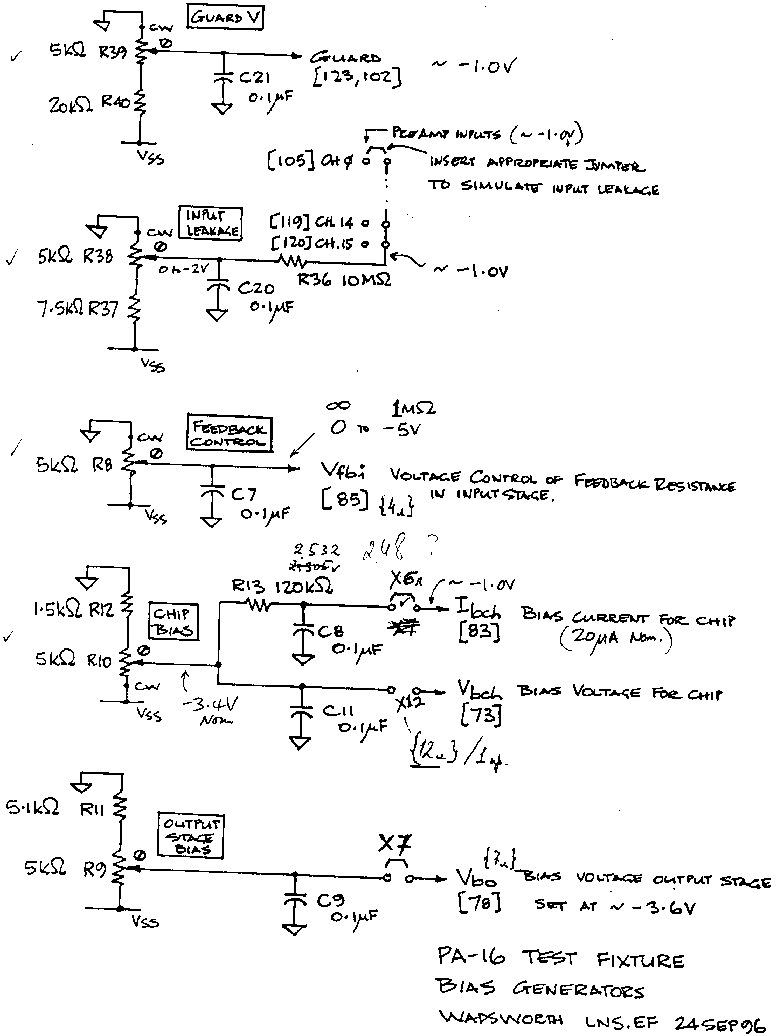 GUARD V
CW
5kΩ R39
C21
0.1µF
GUARD
[123,102]
~ -1.0V
20kΩ R40
VSS
PREAMP INPUTS (~ -1.0V)
[105] CH ϕ
INSERT APPROPRIATE JUMPER
TO SIMULATE INPUT LEAKAGE
INPUT
LEAKAGE
CW
[119] CH.14
[120] CH.15
5kΩ R38
0 to -2V
R36 10MΩ
~ -1.0V
C20
0.1µF
7.5kΩ R37
VSS
∞ 1MΩ
0 TO -5V
FEEDBACK
CONTROL
CW
5kΩ R8
C7
0.1µF
Vfbi VOLTAGE CONTROL OF FEEDBACK RESISTANCE
IN INPUT STAGE.
[85]
VSS
2.532 248 ?
R13 120kΩ
~ -1.0V
1.5kΩ R12
CHIP
BIAS
C8
0.1µF
X7
Ibch BIAS CURRENT FOR CHIP
[83] (20µA NOM.)
5kΩ R10
CW
-3.4V
NOM
VSS
C11
0.1µF
X12
Vbch BIAS VOLTAGE FOR CHIP
[73]
5.1kΩ R11
OUTPUT
STAGE
BIAS
5kΩ R9
X7
C9
0.1µF
Vbo BIAS VOLTAGE OUTPUT STAGE
[78] SET AT ~ -3.6V
VSS
PA-16 TEST FIXTURE
BIAS GENERATORS
WADSWORTH LNS.EF 24SEP96